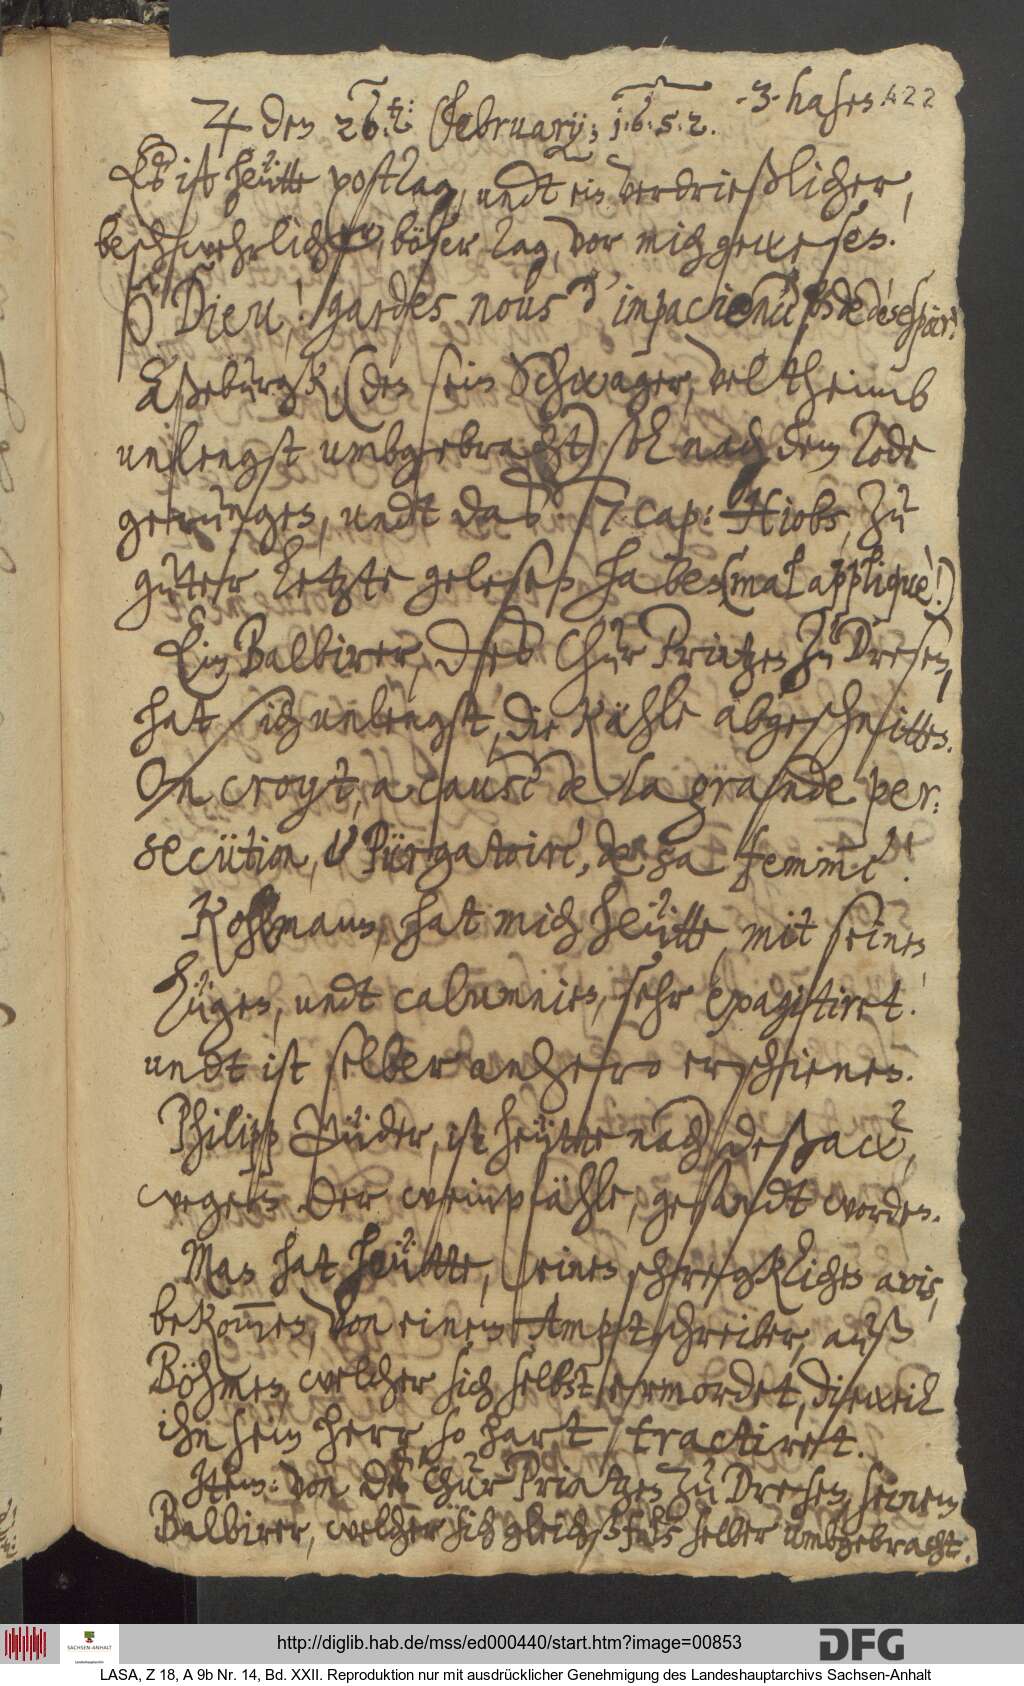 ♃ den 26.t: February; 1.6.5.2. -3- hasen 422
Es ist heütte postTag, undt ein verdrießlicher,
beschwehrlicher, böser Tag, vor mich gewesen.
Ô Dieu! gardes nous d'impacience, & de desespoir!
Aßeburgk, (den sein Schwager, Veltheimb
unlengst umbgebracht) soll nach dem Tode
gerungen, undt das 7. cap: Hiobs, zu
guter letzte gelesen haben (mal appliquè!)
Ein Balbirer, des ChurPrintzen zu Dresen,
hat sich unlengst, die Kähle abgeschnitten.
On croyt, a cause de la grande per-
secütion, & Pürgatoire, de sa femme.
Kohlmann, hat mich heütte, mit seinen
Lügen, undt calumnien, sehr exagitiret.
undt ist selber anhero erschienen.
Philipp Güder, ist heütte nach Deßaw,
wegen der weinpfähle, gesandt worden.
Man hat heütte, einen schregklichen avis,
bekommen, von einem Amptschreiber, auß
Böhmen, welcher sich selbst ermordet, dieweil
ihn sein herr so hart tractiret.
Item: von des ChurPrintzen zu Dresen, seinem
Balbirer, welcher sich gleichsfals selber umbgebracht.
http://diglib.hab.de/mss/ed000440/start.htm?image=00853
SACHSEN-ANHALT
DFG
LASA, Z 18, A 9b Nr. 14, Bd. XXII. Reproduktion nur mit ausdrücklicher Genehmigung des Landeshauptarchivs Sachsen-Anhalt